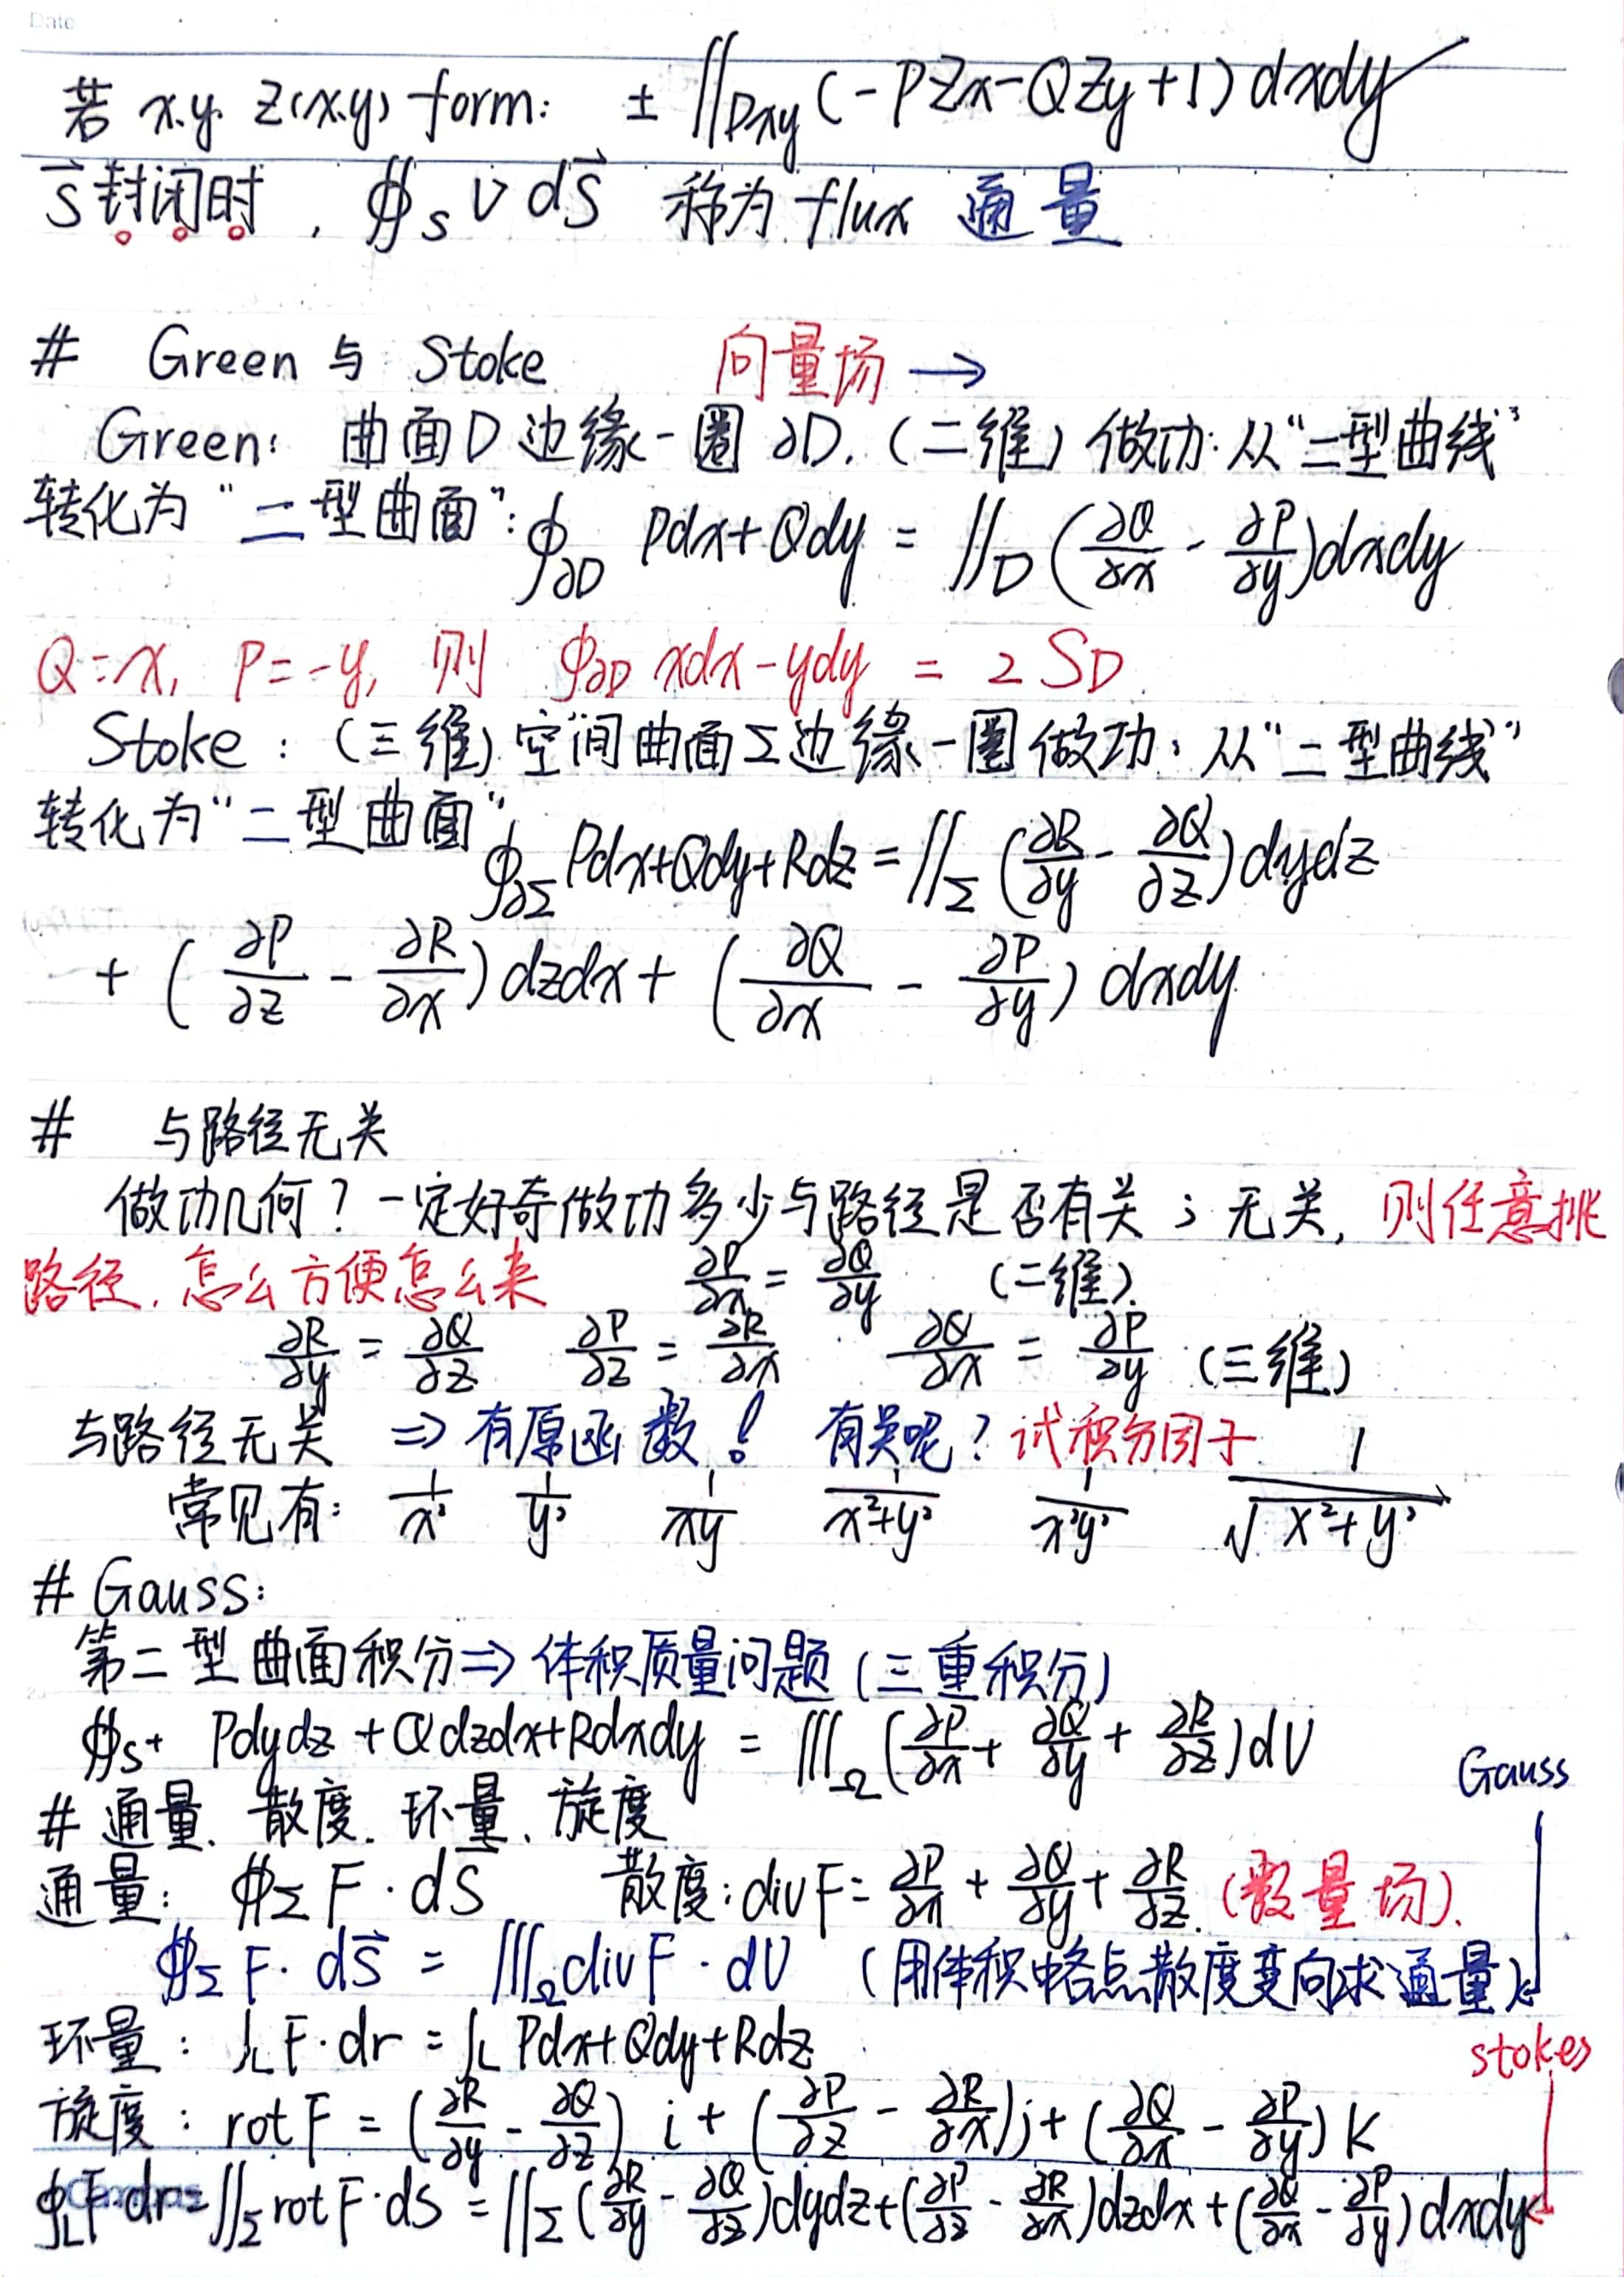 Date
若 x.y. z(x.y) form: ± ∬Dxy (-PZx-QZy+1) dxdy
S⃗封闭时, ∯s v dS⃗ 称为 flux 通量
# Green 与 Stoke 向量场 →
Green: 曲面D边缘一圈 ∂D. (二维) 做功: 从"二型曲线"
转化为 "二型曲面": ∮∂D Pdx+Qdy = ∬D (∂Q/∂x - ∂P/∂y)dxdy
Q=x, P=-y, 则 ∮∂D xdx-ydy = 2SD.
Stoke: (三维) 空间曲面Σ边缘一圈做功: 从"二型曲线"
转化为"二型曲面" ∮∂Σ Pdx+Qdy+Rdz = ∬Σ (∂R/∂y - ∂Q/∂z)dydz
+ (∂P/∂z - ∂R/∂x) dzdx + (∂Q/∂x - ∂P/∂y) dxdy
# 与路径无关
做功几何? 一定好奇做功多少与路径是否有关; 无关, 则任意挑
路径, 怎么方便怎么来 ∂P/∂x = ∂Q/∂y (二维)
∂R/∂y = ∂Q/∂z ∂P/∂z = ∂R/∂x ∂Q/∂x = ∂P/∂y (三维)
与路径无关 ⇒ 有原函数! 有关呢? 试积分因子
常见有: 1/x² 1/y² 1/xy 1/x²+y² 1/x²y² 1/√x²+y²
# Gauss:
第二型曲面积分⇒体积质量问题 (三重积分)
∯S+ Pdydz + Qdzdx+Rdxdy = ∭Ω (∂P/∂x + ∂Q/∂y + ∂R/∂z)dV
Gauss
# 通量. 散度. 环量. 旋度
通量: ∯Σ F·dS 散度: divF = ∂P/∂x + ∂Q/∂y + ∂R/∂z. (数量场).
∯Σ F·dS⃗ = ∭Ω divF·dV (用体积中各点散度变向求通量)
环量: ∫L F·dr = ∫L Pdx+Qdy+Rdz
stokes
旋度: rotF = (∂R/∂y - ∂Q/∂z) i + (∂P/∂z - ∂R/∂x)j + (∂Q/∂x - ∂P/∂y) K
∮L F·dr = ∬Σ rotF·dS = ∬Σ (∂R/∂y - ∂Q/∂z)dydz+(∂P/∂z - ∂R/∂x)dzdx+(∂Q/∂x - ∂P/∂y)dxdy